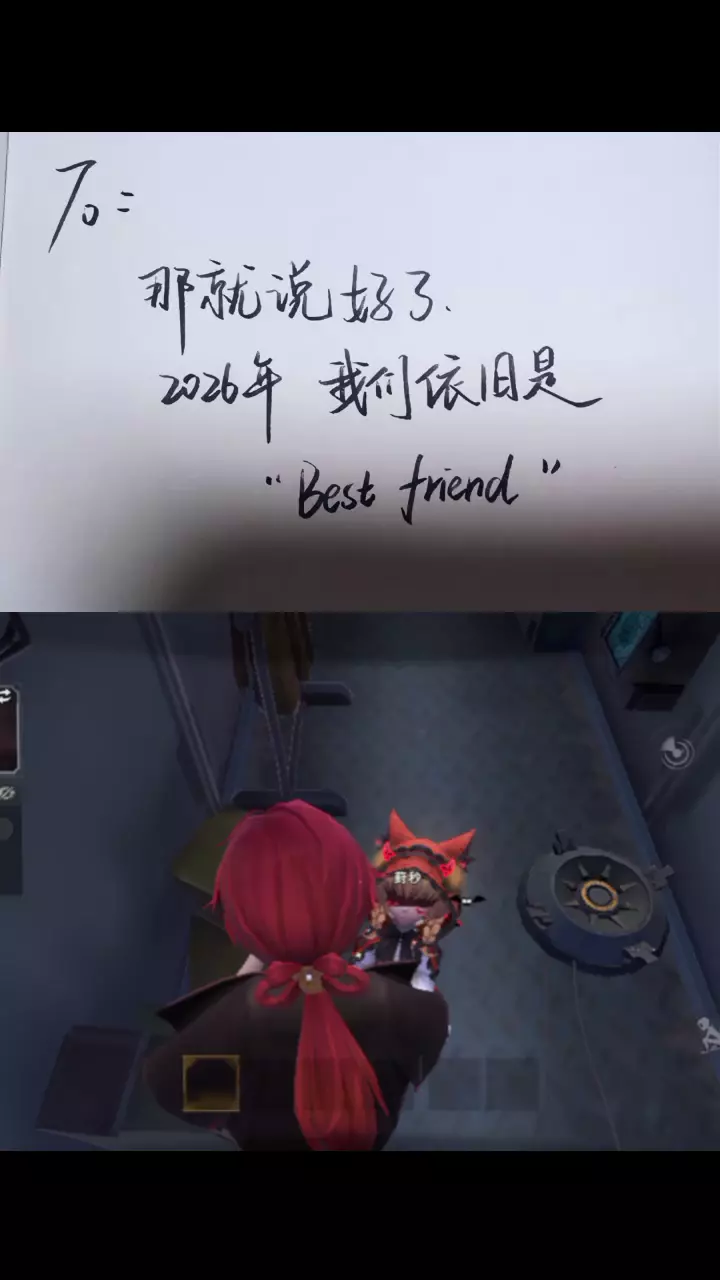 To:
那就说好了.
2026年 我们依旧是
“Best friend”